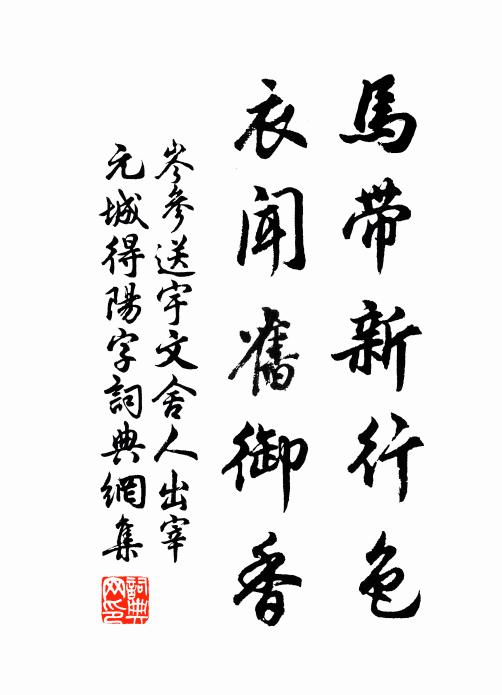 馬帶新行色
衣聞舊御香
岑參送宇文舍人出宰
元城得陽字詞典網集
詞典
网印